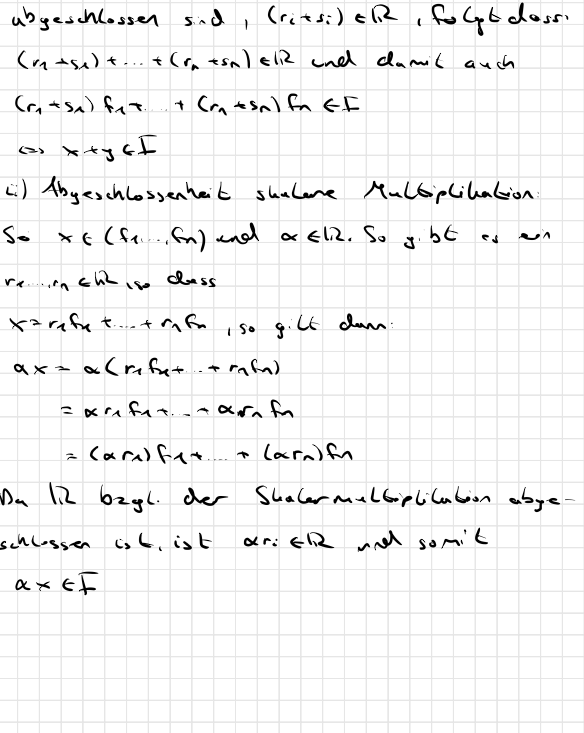 abgeschlossen sind, (ri+si) ∈ ℝ, folgt dass:
(r1+s1) + ... + (rn+sn) ∈ ℝ und damit auch
(r1+s1) f1 + ... + (rn+sn) fn ∈ I
⇔ x+y ∈ I
ii) Abgeschlossenheit skalare Multiplikation:
So x ∈ (f1,...,fn) und α ∈ ℝ. So gibt es ein
r1,...,rn ∈ ℝ, so dass
x = r1f1 + ... + rnfn, so gilt dann:
αx = α(r1f1 + ... + rnfn)
= αr1f1 + ... + αrnfn
= (αr1)f1 + ... + (αrn)fn
Da ℝ bzgl. der Skalarmultiplikation abge-
schlossen ist, ist αri ∈ ℝ und somit
αx ∈ I